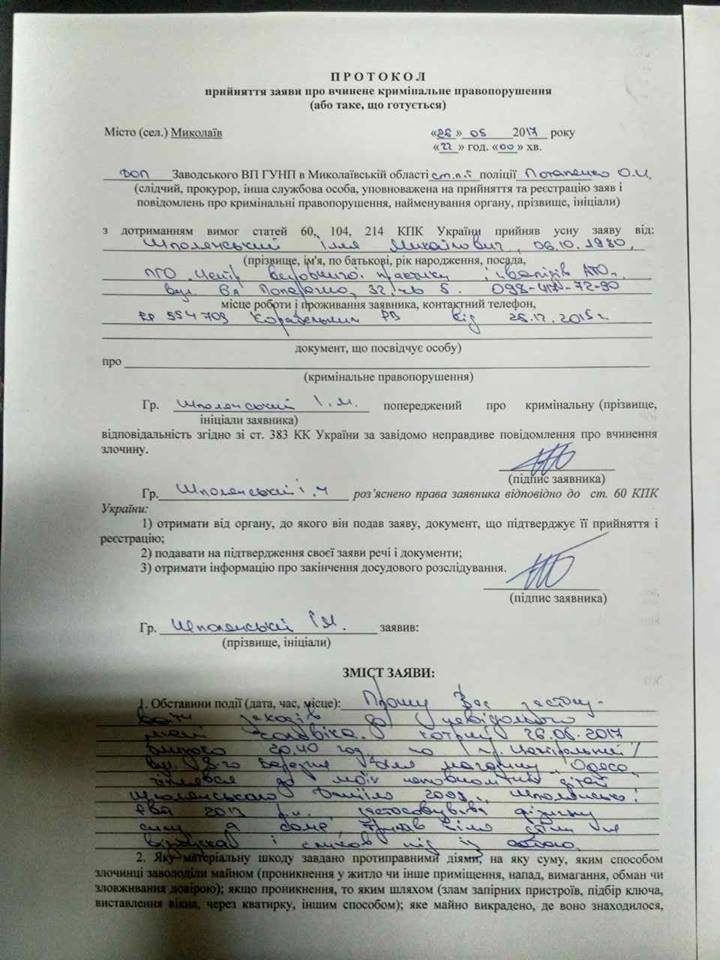 П Р О Т О К О Л
прийняття заяви про вчинене кримінальне правопорушення
(або таке, що готується)
Місто (сел.) Миколаїв «26 » 05 2017 року
«22» год. «00» хв.
ДОП Заводського ВП ГУНП в Миколаївській області ст.л-т поліції Потапенко О.И.
(слідчий, прокурор, інша службова особа, уповноважена на прийняття та реєстрацію заяв і
повідомлень про кримінальні правопорушення, найменування органу, прізвище, ініціали)
з дотриманням вимог статей 60, 104, 214 КПК України прийняв усну заяву від:
Шполянський Ілля Михайлович, 06.10.1980,
(прізвище, ім'я, по батькові, рік народження, посада,
ПГО "Центр і АТО",
вул. 32 098-
місце роботи і проживання заявника, контактний телефон,
ЕР 554703 Корабельним РВ від 2015г.
документ, що посвідчує особу)
про
(кримінальне правопорушення)
Гр. Шполянський І.М. попереджений про кримінальну (прізвище,
ініціали заявника)
відповідальність згідно зі ст. 383 КК України за завідомо неправдиве повідомлення про вчинення
злочину.
(підпис заявника)
Гр. Шполянський І.М роз'яснено права заявника відповідно до ст. 60 КПК
України:
1) отримати від органу, до якого він подав заяву, документ, що підтверджує її прийняття і
реєстрацію;
2) подавати на підтвердження своєї заяви речі і документи;
3) отримати інформацію про закінчення досудового розслідування.
(підпис заявника)
Гр. Шполянський ІМ. заявив:
(прізвище, ініціали)
ЗМІСТ ЗАЯВИ:
1. Обставини події (дата, час, місце): Прошу Вас застосу-
вати заходів до невідомого
мені чоловіка, котрий 2017
близько 20.40 год, по пр. Центральний/
вул. 8-го Березня біля магазину "Одеса"
до моїх неповнолітніх дітей
Шполянського Даниїла 2009
2017 застосовував фізичну
силу, а саме
і
2. Яку матеріальну шкоду завдано протиправними діями, на яку суму, яким способом
злочинці заволоділи майном (проникнення у житло чи інше приміщення, напад, вимагання, обман чи
зловживання довірою); якщо проникнення, то яким шляхом (злам запірних пристроїв, підбір ключа,
виставлення вікна, через кватирку, іншим способом); яке майно викрадено, де воно знаходилося,